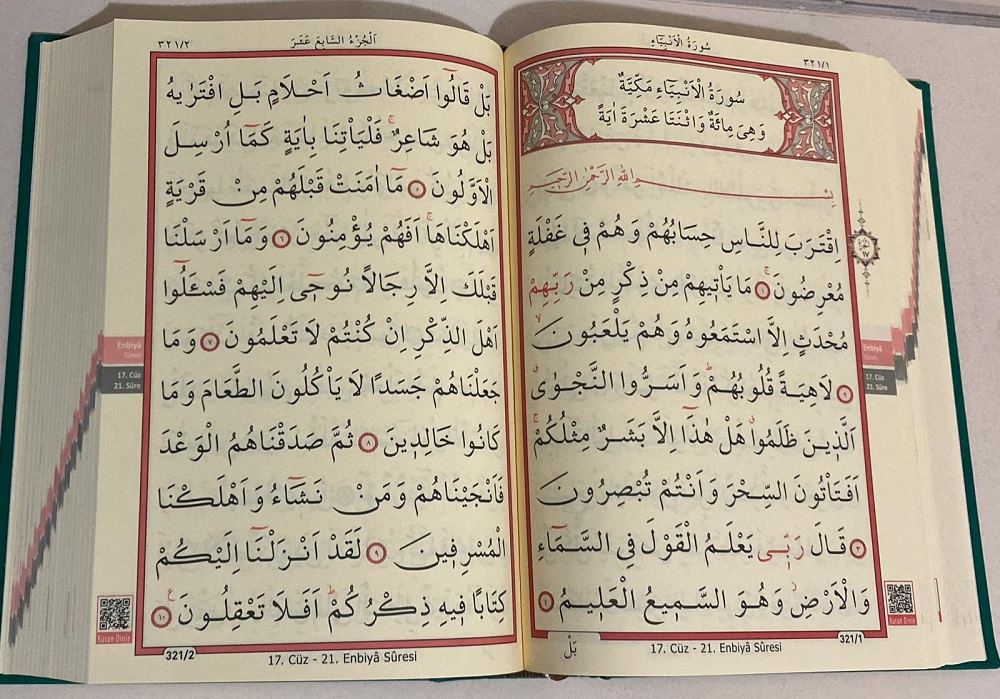 سُورَةُ الْاَنْبِيَٓاءِ
٣٢١/١
سُورَةُ الْاَنْبِيَٓاءِ مَكِّيَّةٌ
وَهِىَ مِائَةٌ وَاثْنَتَا عَشْرَةَ اٰيَةً
بِسْمِ اللّٰهِ الرَّحْمٰنِ الرَّحٖيمِ
اِقْتَرَبَ لِلنَّاسِ حِسَابُهُمْ وَهُمْ فٖى غَفْلَةٍ
مُعْرِضُونَۚ ﴿١﴾ مَا يَأْتٖيهِمْ مِنْ ذِكْرٍ مِنْ رَبِّهِمْ
مُحْدَثٍ اِلَّا اسْتَمَعُوهُ وَهُمْ يَلْعَبُونَۙ
﴿٢﴾ لَاهِيَةً قُلُوبُهُمْۜ وَاَسَرُّوا النَّجْوٰىۗ
اَلَّذٖينَ ظَلَمُواۗ هَلْ هٰذَٓا اِلَّا بَشَرٌ مِثْلُكُمْۚ
اَفَتَأْتُونَ السِّحْرَ وَاَنْتُمْ تُبْصِرُونَ
﴿٣﴾ قَالَ رَبّٖى يَعْلَمُ الْقَوْلَ فِى السَّمَٓاءِ
وَالْاَرْضِۘ وَهُوَ السَّمٖيعُ الْعَلٖيمُ ﴿٤﴾
بَلْ
17. Cüz - 21. Enbiyâ Sûresi
321/1
Enbiyâ
Sûresi
17. Cüz
21. Sûre
Kuran Dinle
اَلْجُزْءُ السَّابِعَ عَشَرَ
٣٢١/٢
بَلْ قَالُٓوا اَضْغَاثُ اَحْلَامٍ بَلِ افْتَرٰيهُ
بَلْ هُوَ شَاعِرٌۚ فَلْيَأْتِنَا بِاٰيَةٍ كَمَٓا اُرْسِلَ
الْاَوَّلُونَ ﴿٥﴾ مَٓا اٰمَنَتْ قَبْلَهُمْ مِنْ قَرْيَةٍ
اَهْلَكْنَاهَاۚ اَفَهُمْ يُؤْمِنُونَ ﴿٦﴾ وَمَٓا اَرْسَلْنَا
قَبْلَكَ اِلَّا رِجَالًا نُوحٖٓى اِلَيْهِمْ فَسْـَٔلُٓوا
اَهْلَ الذِّكْرِ اِنْ كُنْتُمْ لَا تَعْلَمُونَ ﴿٧﴾ وَمَا
جَعَلْنَاهُمْ جَسَدًا لَا يَأْكُلُونَ الطَّعَامَ وَمَا
كَانُوا خَالِدٖينَ ﴿٨﴾ ثُمَّ صَدَقْنَاهُمُ الْوَعْدَ
فَاَنْجَيْنَاهُمْ وَمَنْ نَشَٓاءُ وَاَهْلَكْنَا
الْمُسْرِفٖينَ ﴿٩﴾ لَقَدْ اَنْزَلْنَٓا اِلَيْكُمْ
كِتَابًا فٖيهِ ذِكْرُكُمْۜ اَفَلَا تَعْقِلُونَۚ ﴿١٠﴾
321/2
17. Cüz - 21. Enbiyâ Sûresi
Enbiyâ
Sûresi
17. Cüz
21. Sûre
Kuran Dinle